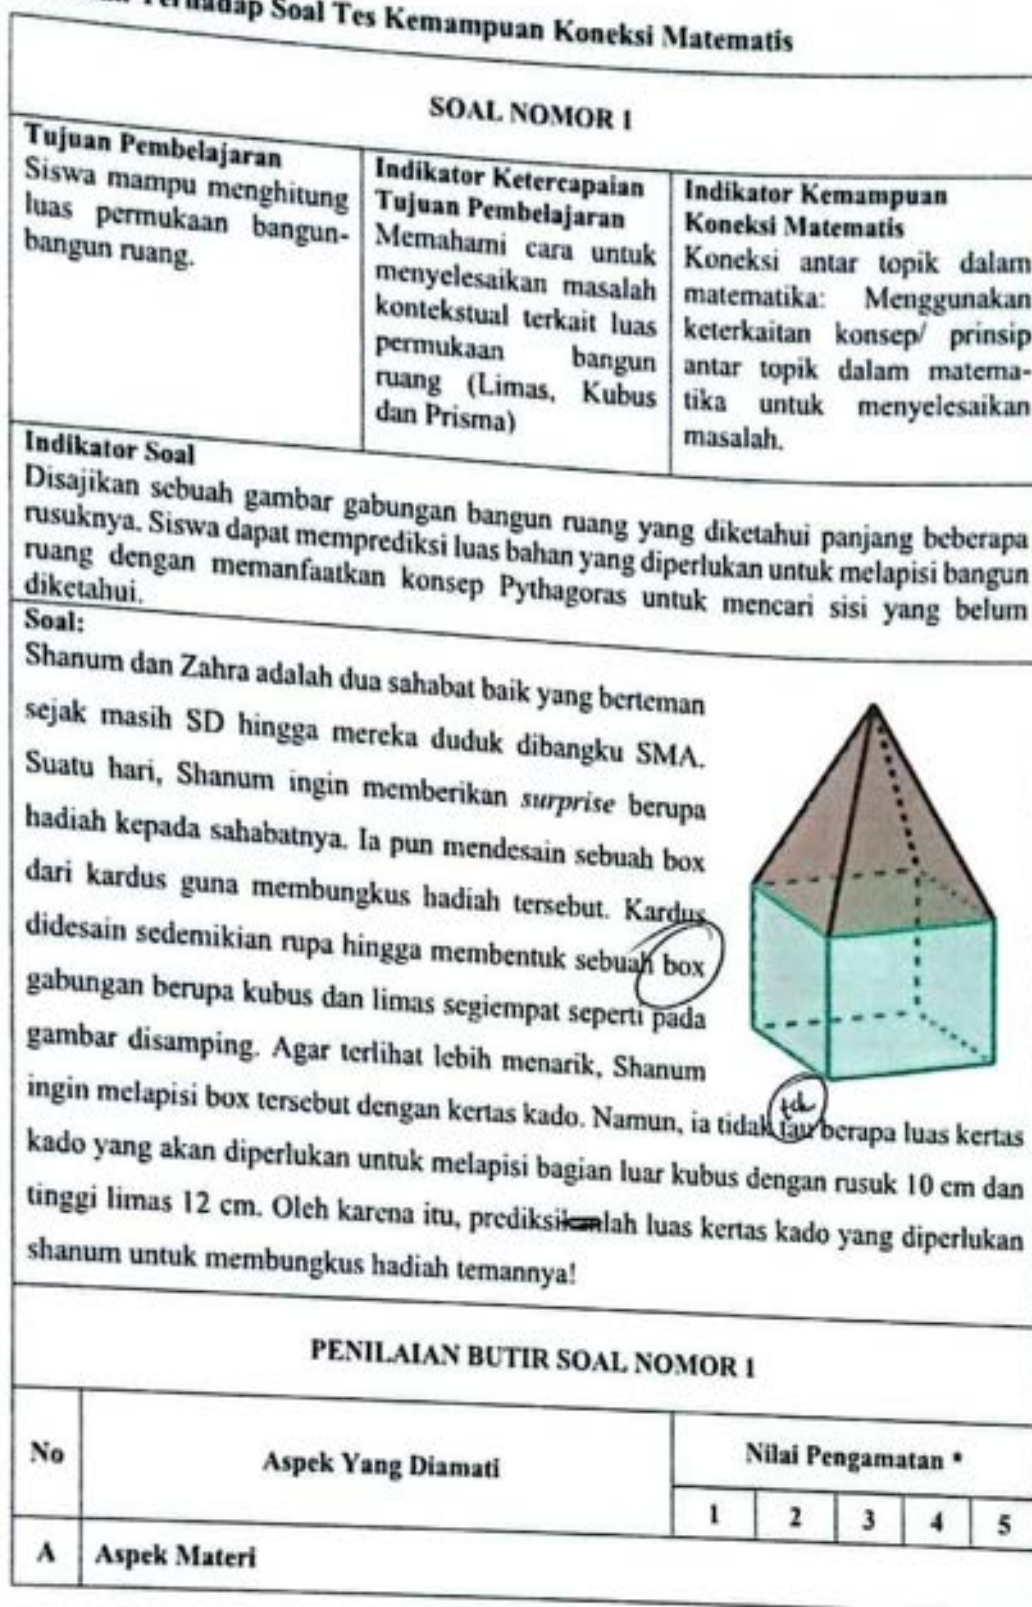 Terhadap Soal Tes Kemampuan Koneksi Matematis
SOAL NOMOR 1
Tujuan Pembelajaran
Siswa mampu menghitung
luas permukaan bangun-
bangun ruang.
Indikator Ketercapaian
Tujuan Pembelajaran
Memahami cara untuk
menyelesaikan masalah
kontekstual terkait luas
permukaan bangun
ruang (Limas, Kubus
dan Prisma)
Indikator Kemampuan
Koneksi Matematis
Koneksi antar topik dalam
matematika: Menggunakan
keterkaitan konsep/ prinsip
antar topik dalam matema-
tika untuk menyelesaikan
masalah.
Indikator Soal
Disajikan sebuah gambar gabungan bangun ruang yang diketahui panjang beberapa
rusuknya. Siswa dapat memprediksi luas bahan yang diperlukan untuk melapisi bangun
ruang dengan memanfaatkan konsep Pythagoras untuk mencari sisi yang belum
diketahui.
Soal:
Shanum dan Zahra adalah dua sahabat baik yang berteman
sejak masih SD hingga mereka duduk dibangku SMA.
Suatu hari, Shanum ingin memberikan surprise berupa
hadiah kepada sahabatnya. Ia pun mendesain sebuah box
dari kardus guna membungkus hadiah tersebut. Kardus
didesain sedemikian rupa hingga membentuk sebuah box
gabungan berupa kubus dan limas segiempat seperti pada
gambar disamping. Agar terlihat lebih menarik, Shanum
ingin melapisi box tersebut dengan kertas kado. Namun, ia tidak tau berapa luas kertas
kado yang akan diperlukan untuk melapisi bagian luar kubus dengan rusuk 10 cm dan
tinggi limas 12 cm. Oleh karena itu, prediksikanlah luas kertas kado yang diperlukan
shanum untuk membungkus hadiah temannya!
PENILAIAN BUTIR SOAL NOMOR 1
No
Aspek Yang Diamati
Nilai Pengamatan *
1 2 3 4 5
A Aspek Materi